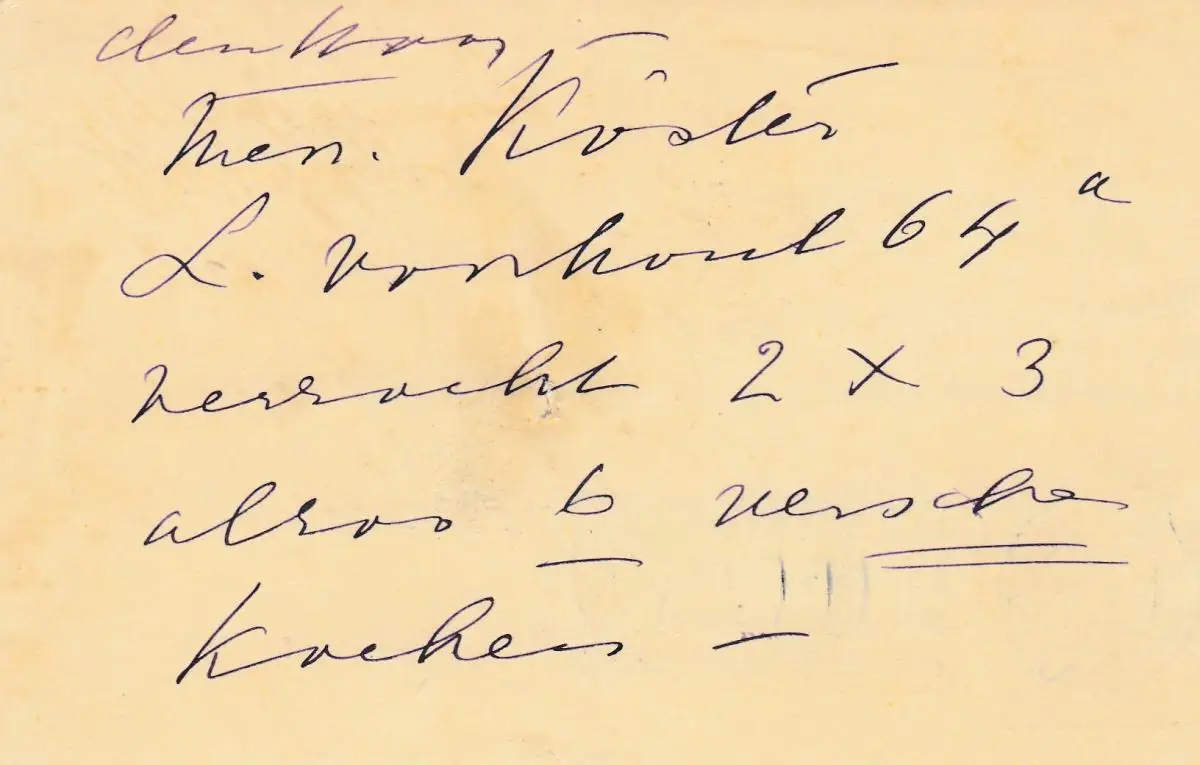 den Haag —
Mevr. Köster
L. Voorhout 64 a
verzocht 2 x 3
alzoo 6 versche
Koeken —